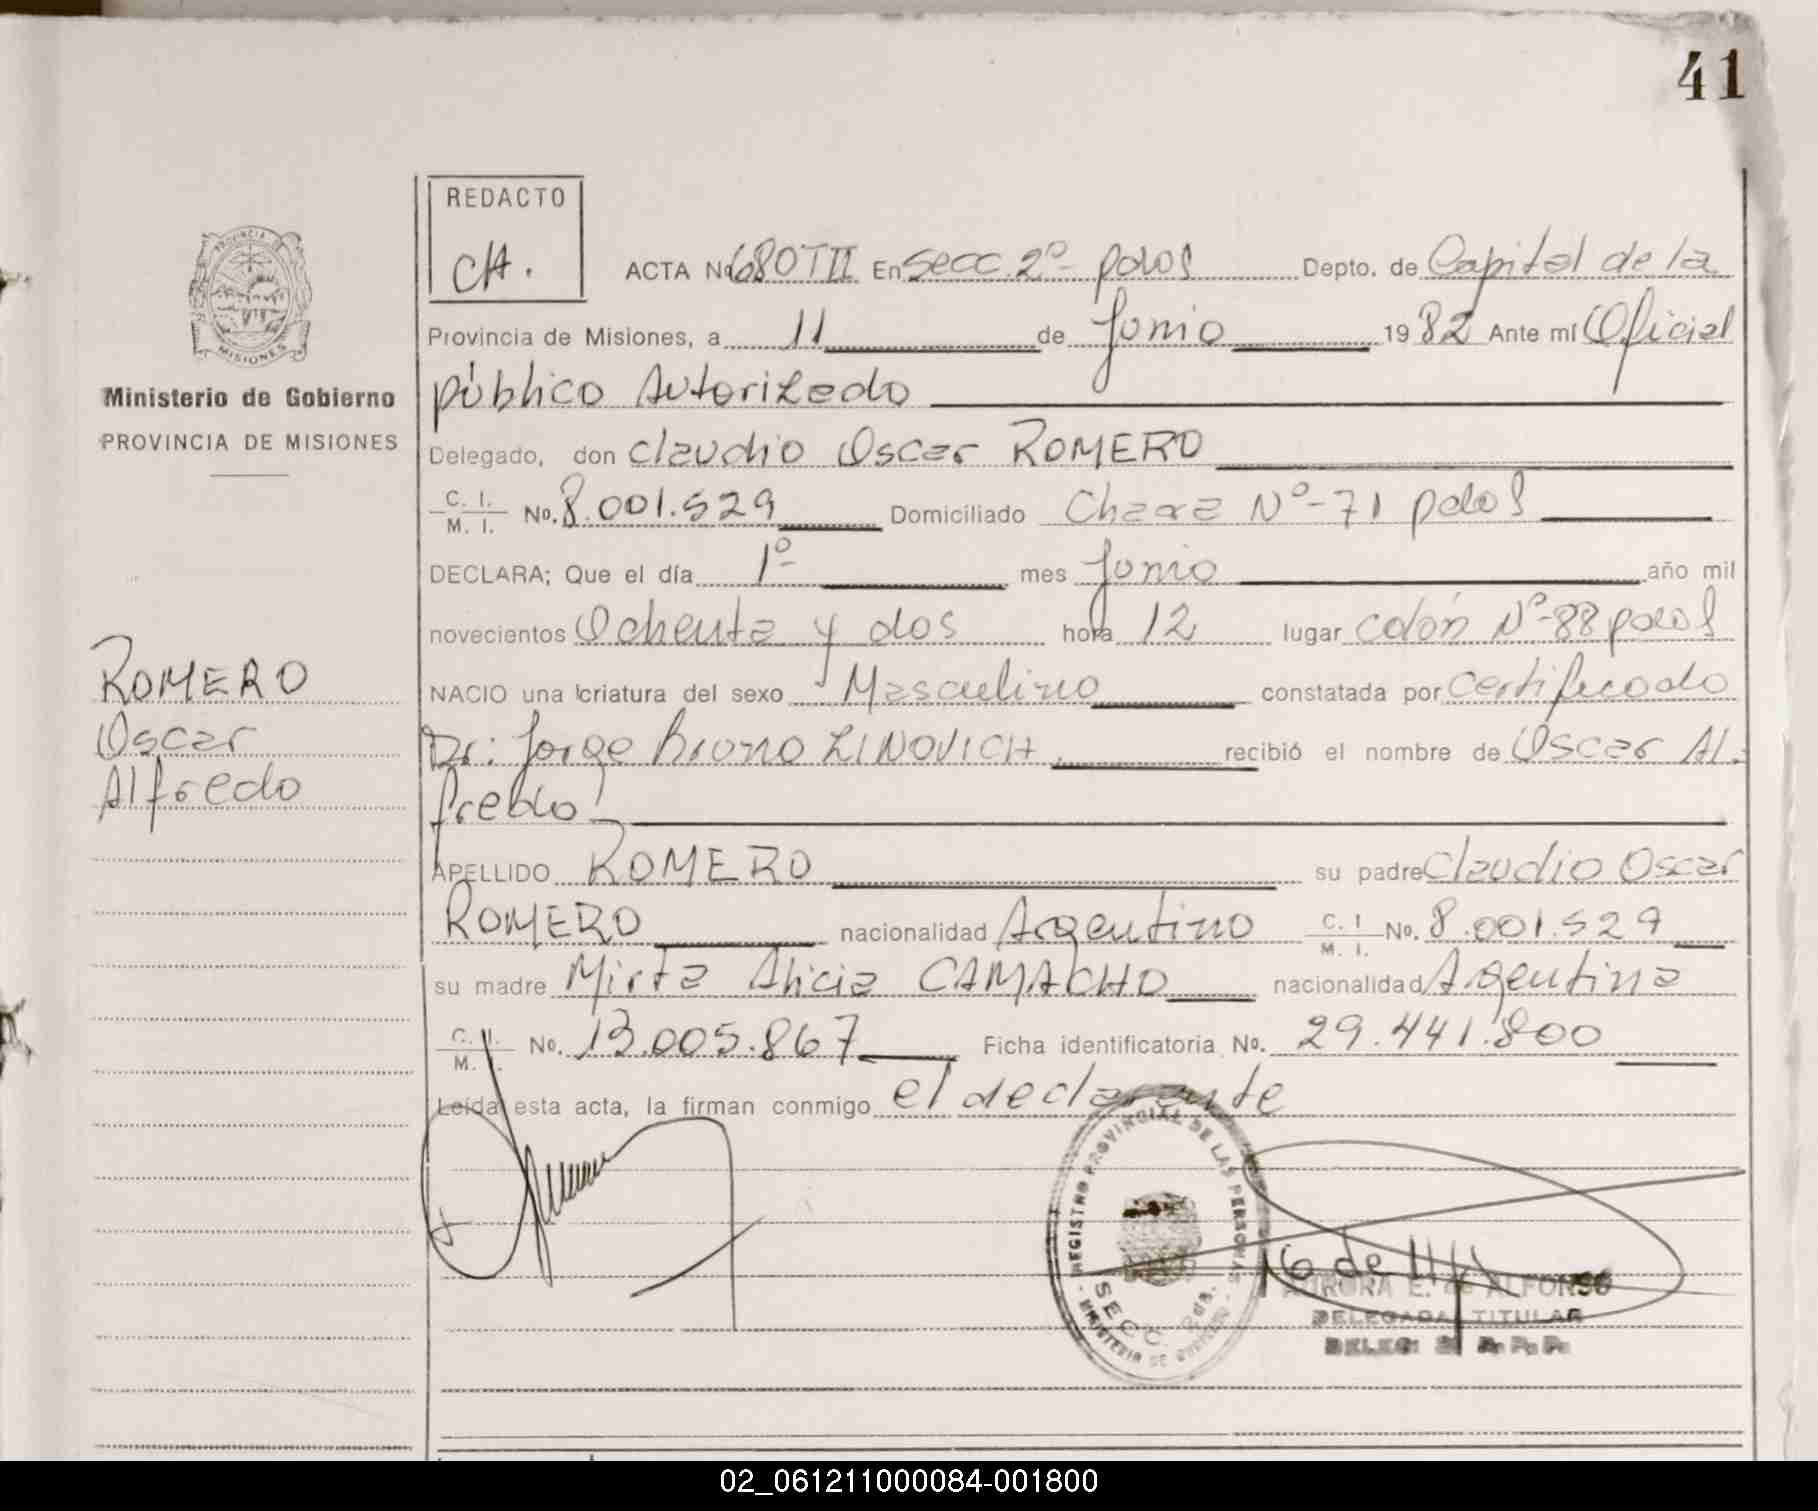 41
REDACTO
CA.
PROVINCIA DE
MISIONES
Ministerio de Gobierno
PROVINCIA DE MISIONES
ROMERO
Oscar
Alfredo
ACTA No 680TII En Secc 2º- pdas Depto. de Capital de la
Provincia de Misiones, a 11 de Junio 1982 Ante mí Oficial
público Autorizado
Delegado, don Claudio Oscar ROMERO
C. I. M. I. No. 8.001.529 Domiciliado Chacra Nº-71 pdas
DECLARA; Que el día 1º- mes Junio año mil
novecientos Ochenta y dos hora 12 lugar colón Nº-88 pdas
NACIO una criatura del sexo Masculino constatada por Certificado
Dr: Jorge Bruno LINOVICH recibió el nombre de Oscar Al-
fredo
APELLIDO ROMERO su padre Claudio Oscar
ROMERO nacionalidad Argentino C. I M. I. No. 8.001.529
su madre Mirta Alicia CAMACHO nacionalidad Argentina
C. I. M. No. 13.005.867 Ficha identificatoria No. 29.441.800
Leída esta acta, la firman conmigo el declarante
REGISTRO PROVINCIAL DE LAS PERSONAS
SECC. 2da.
MINISTERIO DE GOBIERNO
AURORA E. de ALFONSO
DELEGADA TITULAR
02_061211000084-001800